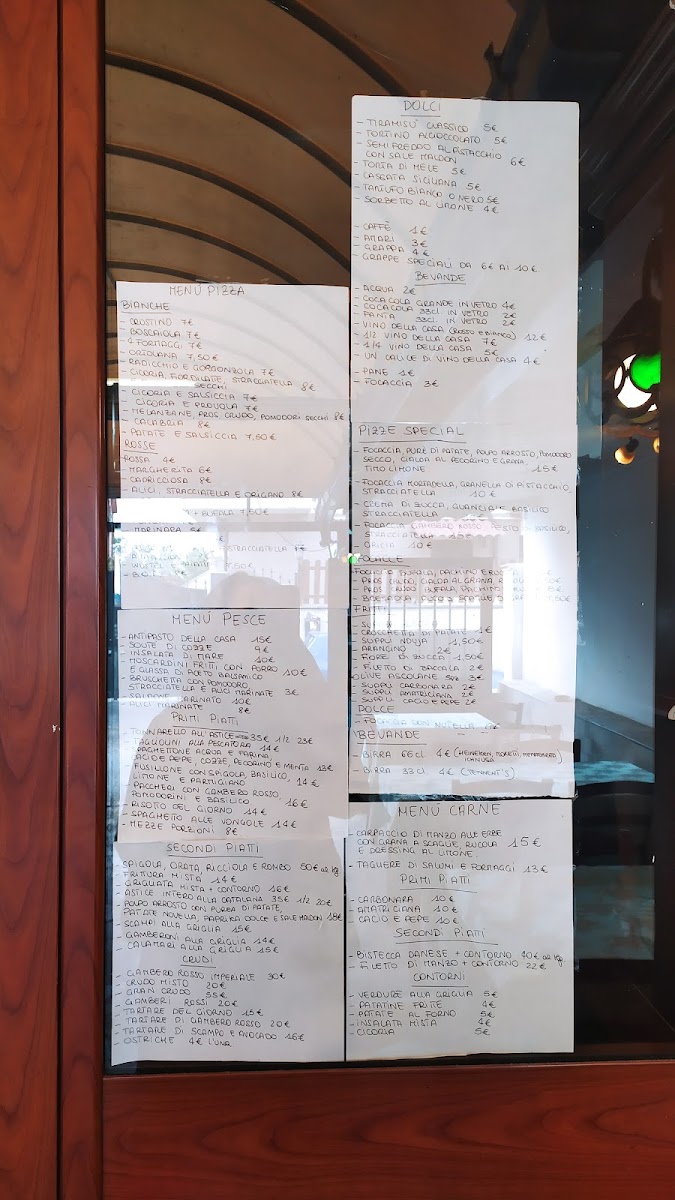 MENÚ PIZZA
BIANCHE
- CROSTINO 7€
- BOSCAIOLA 7€
- 4 FORMAGGI 7€
- ORTOLANA 7,50€
- RADICCHIO E GORGONZOLA 7€
- CICORIA, FIORDILATTE, STRACCIATELLA 8€
SECCHI
- CICORIA E SALSICCIA 7€
CICORIA E PROVOLA 7€
- MELANZANE, PROS. CRUDO, POMODORI SECCHI 8€
- CALABRIA 8€
- PATATE E SALSICCIA 7,50€
ROSSE
ROSSA 4€
- MARGHERITA 6€
- CAPRICCIOSA 8€
- ALICI, STRACCIATELLA E ORIGANO 8€
+ BUFALA 7,50€
- MARINARA 5€
STRACCIATELLA
MENÚ PESCE
- ANTIPASTO DELLA CASA 15€
- SOUTÉ DI COZZE 9€
- INSALATA DI MARE 10€
- MOSCARDINI FRITTI CON PORRO
E GLASSA DI ACETO BALSAMICO 10€
- BRUSCHETTA CON POMODORO
STRACCIATELLA E ALICI MARINATE 3€
- SALMONE MARINATO 10€
- ALICI MARINATE 8€
PRIMI PIATTI
- TONNARELLO ALL'ASTICE 35€ 1/2 23€
- TAGLIOLINI ALLA PESCATORA 14€
- SPAGHETTONE ACQUA E FARINA
CACIO E PEPE, COZZE, PECORINO E MENTA 13€
- FUSILLONE CON SPIGOLA, BASILICO,
LIMONE E PARMIGIANO 14€
- PACCHERI CON GAMBERO ROSSO,
POMODORINI E BASILICO 16€
- RISOTTO DEL GIORNO 14€
- SPAGHETTO ALLE VONGOLE 14€
- MEZZE PORZIONI 8€
SECONDI PIATTI
SPIGOLA, ORATA, RICCIOLA E ROMBO 50€ al kg
- FRITTURA MISTA 14€
- GRIGLIATA MISTA + CONTORNO 16€
- ASTICE INTERO ALLA CATALANA 35€ 1/2 20€
POLPO ARROSTO CON PUREA DI PATATE,
PATATE NOVELLA, PAPRIKA DOLCE E SALE MALDON 18€
- SCAMPI ALLA GRIGLIA 15€
- GAMBERONI ALLA GRIGLIA 14€
- CALAMARI ALLA GRIGLIA 15€
CRUDI
- GAMBERO ROSSO IMPERIALE 30€
- CRUDO MISTO 20€
- GRAN CRUDO 55€
- GAMBERI ROSSI 20€
- TARTARE DEL GIORNO 15€
- TARTARE DI GAMBERO ROSSO 20€
- TARTARE DI SCAMPO E AVOCADO 16€
- OSTRICHE 4€ L'UNA
DOLCI
- TIRAMISU' CLASSICO 5€
- TORTINO AL CIOCCOLATO 5€
- SEMIFREDDO AL PISTACCHIO
CON SALE MALDON 6€
- TORTA DI MELE 5€
- CASSATA SICILIANA 5€
- TARTUFO BIANCO O NERO 5€
- SORBETTO AL LIMONE 4€
- CAFFÈ 1€
- AMARI 3€
- GRAPPA 4€
- GRAPPE SPECIALI DA 6€ AI 10€
BEVANDE
- ACQUA 2€
- COCA COLA GRANDE IN VETRO 4€
- COCACOLA 33cl IN VETRO 2€
- FANTA 33cl IN VETRO 2€
- VINO DELLA CASA (ROSSO E BIANCO) 12€
- 1/2 VINO DELLA CASA 7€
- 1/4 VINO DELLA CASA 5€
- UN CALICE DI VINO DELLA CASA 4€
- PANE 1€
- FOCACCIA 3€
PIZZE SPECIAL
- FOCACCIA, PURÈ DI PATATE, POLPO ARROSTO, POMODORO
SECCO, CIALDA AL PECORINO E GRANA,
TIMO LIMONE 15€
- FOCACCIA MORTADELLA, GRANELLA DI PISTACCHIO,
STRACCIATELLA 10€
- CREMA DI ZUCCA, GUANCIALE BASILICO
STRACCIATELLA
- FOCACCIA GAMBERO ROSSO, PESTO DI BASILICO,
STRACCIATELLA
- GRICIA 10€
- CROCCHETTA DI PATATE 1€
- SUPPLÌ NDUJA 1,50€
- ARANCINO 2€
- FIORE DI ZUCCA 1,50€
- FILETTO DI BACCALÀ 2€
OLIVE ASCOLANE 3€
- SUPPLÌ CARBONARA 2€
- SUPPLÌ AMATRICIANA 2€
- SUPPLÌ CACIO E PEPE 2€
DOLCE
- FOCACCIA CON NUTELLA
BEVANDE
- BIRRA 66cl 4€ (HEINEKEN, MORETTI, MENABREA
ICHNUSA
- BIRRA 33cl 4€ (TENNENT'S)
MENÚ CARNE
- CARPACCIO DI MANZO ALLE ERBE
CON GRANA A SCAGLIE, RUCOLA 15€
E DRESSING AL LIMONE
- TAGLIERE DI SALUMI E FORMAGGI 13€
PRIMI PIATTI
- CARBONARA 10€
- AMATRICIANA 10€
- CACIO E PEPE 10€
SECONDI PIATTI
- BISTECCA DANESE + CONTORNO 40€ al kg
- FILETTO DI MANZO + CONTORNO 22€
CONTORNI
- VERDURE ALLA GRIGLIA 5€
- PATATINE FRITTE 4€
- PATATE AL FORNO 5€
- INSALATA MISTA 4€
- CICORIA 5€